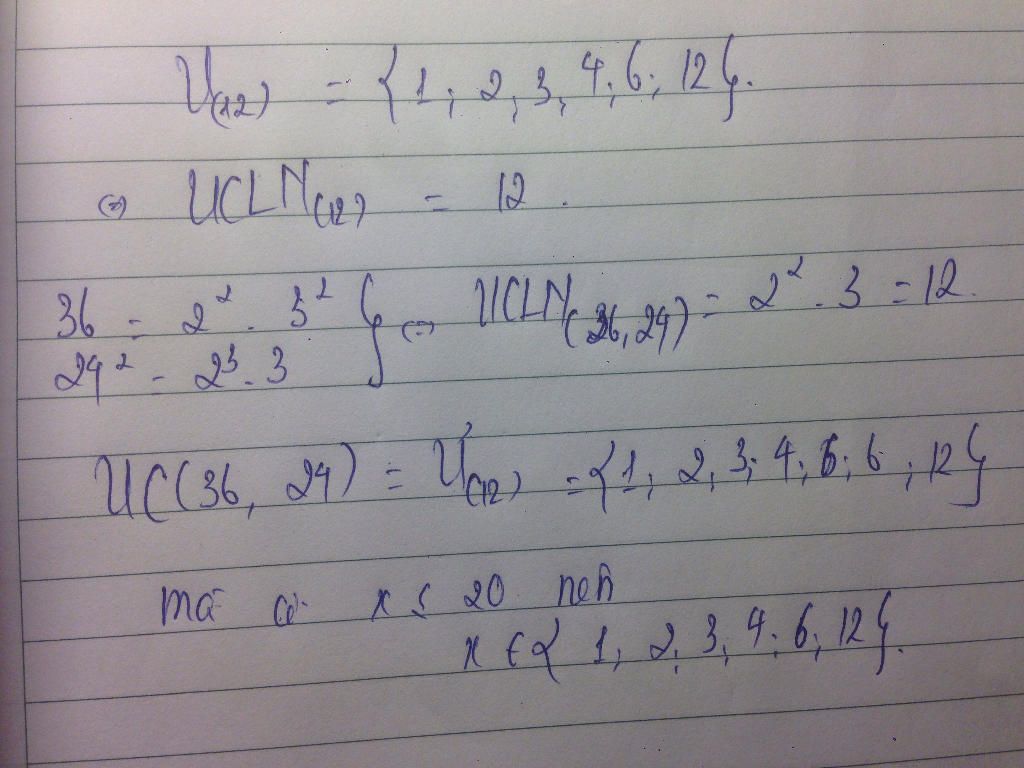 Ư(12) = {1; 2; 3; 4; 6; 12}.
(=) UCLN(12) = 12.
36 = 2² . 3² } (=) UCLN(36, 24) = 2² . 3 = 12.
24² = 2³ . 3
UC(36, 24) = Ư(12) = {1; 2; 3; 4; 6; 12}
mà có x ≤ 20 nên
x ∈ { 1; 2; 3; 4; 6; 12}.